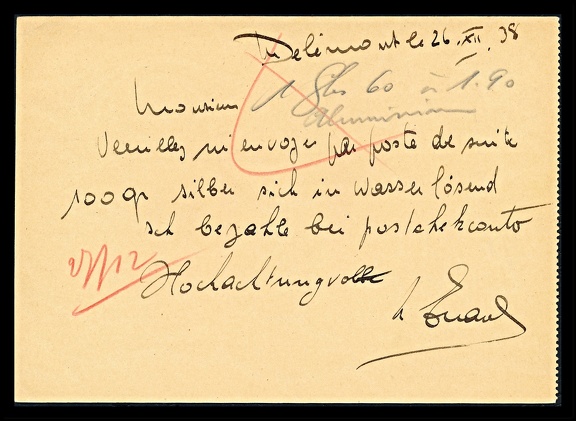 Delémont le 26.XII.38
1 60 à 1.90
Monsieur Aluminium
Veuillez m'envoyer par poste de suite
100gr silber sich in wasser lösend
ich bezahle bei postchekconto
27/12 Hochachtungvoll